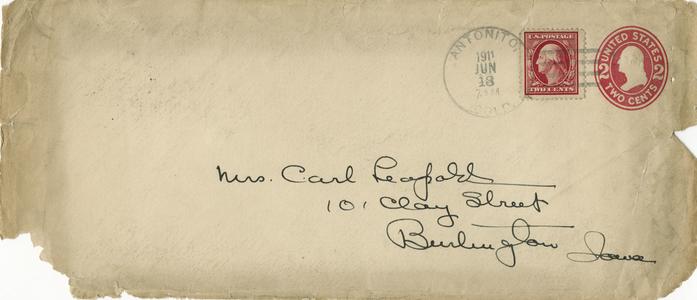 ANTONITO, COLO.
1911
JUN
13
U.S. POSTAGE
TWO CENTS
UNITED STATES
2 2
TWO CENTS
Mrs. Carl Leopold
101 Clay Street
Burlington Iowa